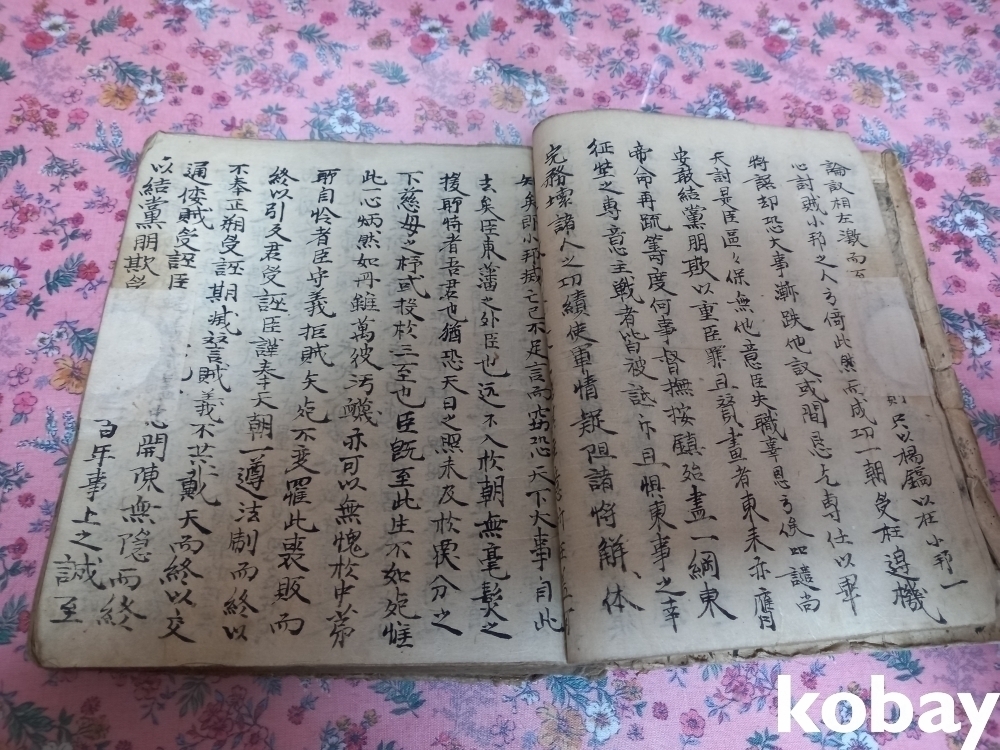 論議相左激而至
則只以橋鎬以在小邦一
心討賊小邦之人方倚此然成功一朝受枉遑機
將誤却恐大事漸跌他議或間忌允專仕以畢
天討是臣區〻保無他意臣失職辜恩方俟如譴尚
安敢結黨朋欺以重臣罪且贊畫者東来亦應
帝命再疏等度何事督撫按鎮殆盡一綱東
征莖之專意主戰者皆被詆斥且惧東事之幸
完務壞諸人之功績使軍情疑阻諸將解体
矣即小邦滅亡已不足言而窃恐天下大事自此
去矣臣東藩之外臣也远不入於朝無毫髮之
援耶恃者吾君也猶恐天日之照未及於處分之
下慈母之杼或投於三至也臣旣至此生不如死惟
此一心炳然如丹雖萬被汚衊亦可以無愧於中第
耶自怜者臣守義拒賊矢死不变罹此喪敗而
終以引久君受誣臣謹奉天朝一遵法制而終以
不奉正朔受誣期滅讐賊義不共戴天而終以交
通倭賊受誣臣
開陳無隐而終
以結黨朋欺
百年事上之誠至
kobay